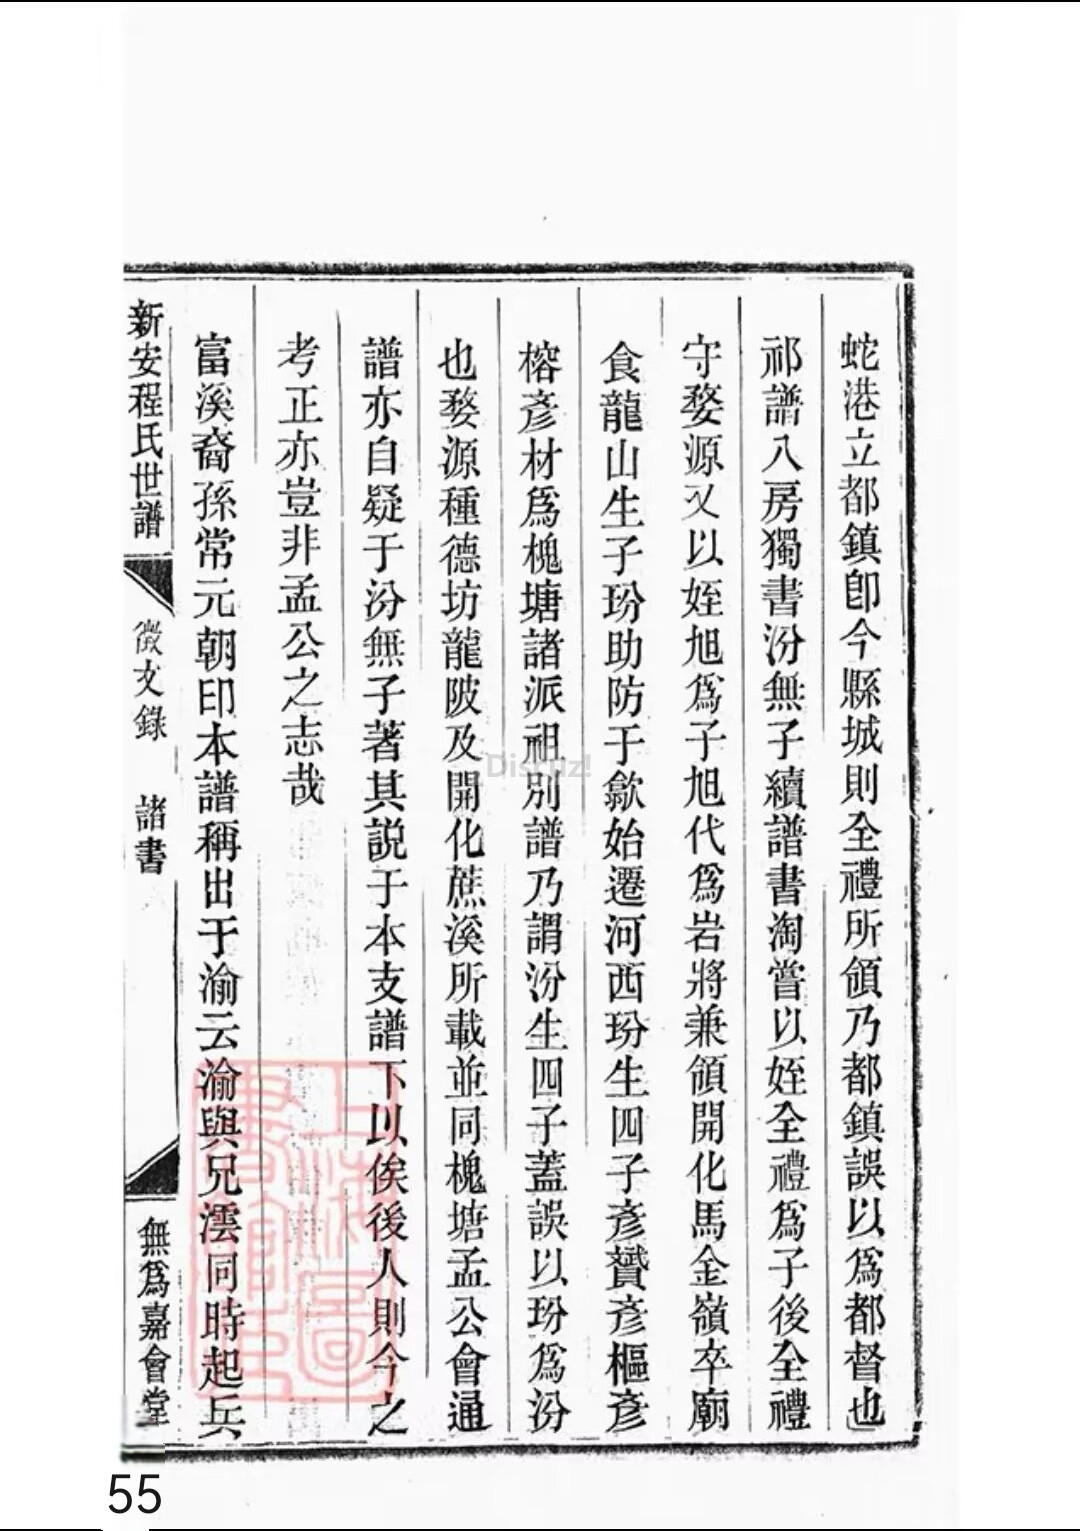 蛇港立都鎮卽今縣城則全禮所領乃都鎮誤以爲都督也
祁譜八房獨書汾無子續譜書淘嘗以姪全禮爲子後全禮
守婺源又以姪旭爲子旭代爲岩將兼領開化馬金嶺卒廟
食龍山生子玢助防于歙始遷河西玢生四子彥贇彥樞彥
榕彥材爲槐塘諸派祖別譜乃謂汾生四子蓋誤以玢爲汾
也婺源種德坊龍陂及開化蔗溪所載並同槐塘孟公會通
譜亦自疑于汾無子著其説于本支譜下以俟後人則今之
考正亦豈非孟公之志哉
富溪裔孫常元朝印本譜稱出于渝云渝與兄澐同時起兵
新安程氏世譜
徵文錄 諸書
無爲嘉會堂
上海圖書館藏
Discuz!
55